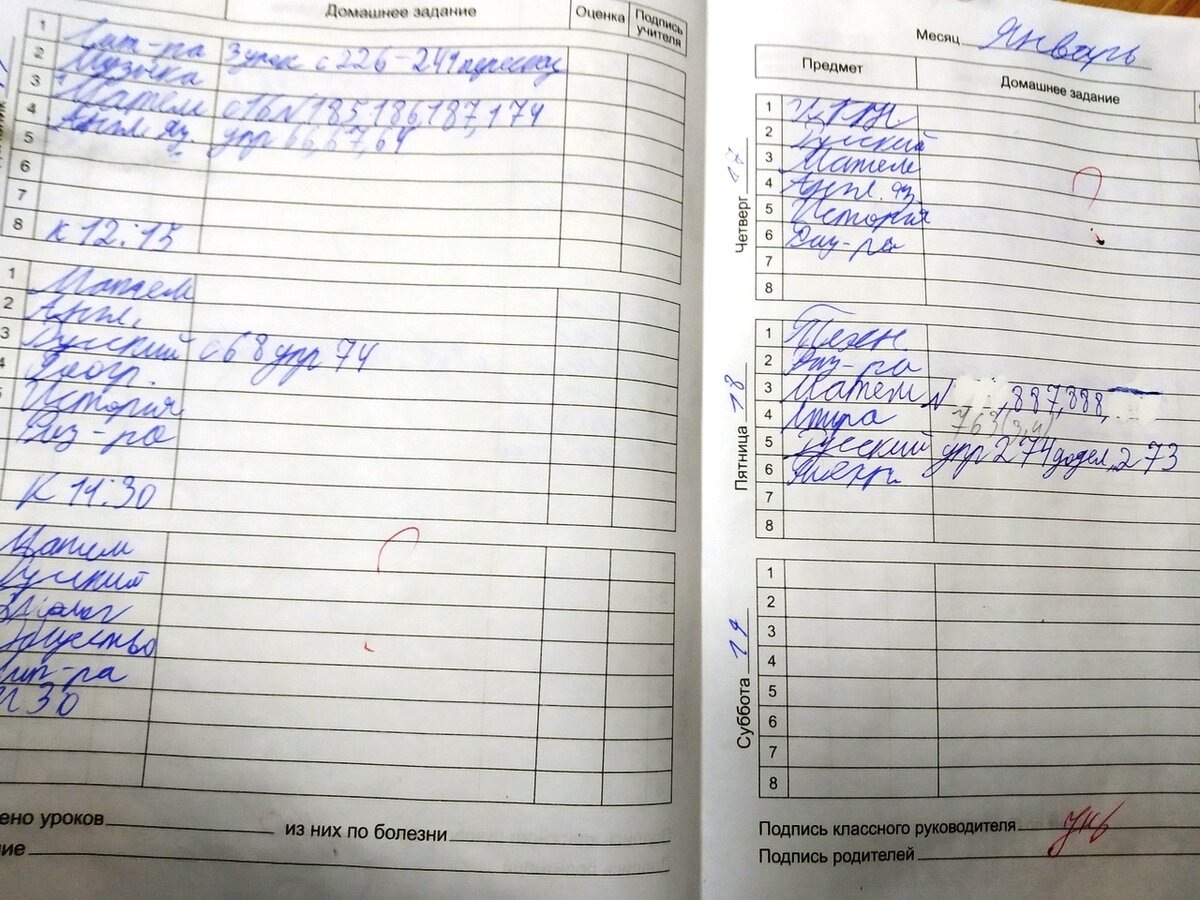 Домашнее задание Оценка Подпись учителя
1 Лит-ра 3 урок с 226-241 пересказ
2 Музыка
3 Матем с 16 N 185,186,187,174
4 Англ. яз. упр 66,67,64
5
6
7
8 К 12:15
1 Матем
2 Англ.
3 Русский с 68 упр 74
4 Геогр.
5 История
Физ-ра
К 14:30
Матем
Русский
Общество
Лит-ра
30
ено уроков из них по болезни
ие
Месяц Январь
Предмет Домашнее задание
Четверг 17
1
2 Русский
3 Матем
4 Англ. яз
5 История
6 Физ-ра
7
8
Пятница 18
1 Техн
2 Физ-ра
3 Матем N ,887,888,
763(3,4)
4 Лтра
5 Русский упр 274 додел, 273
6
7
8
Суббота 19
1
2
3
4
5
6
7
8
Подпись классного руководителя
Подпись родителей